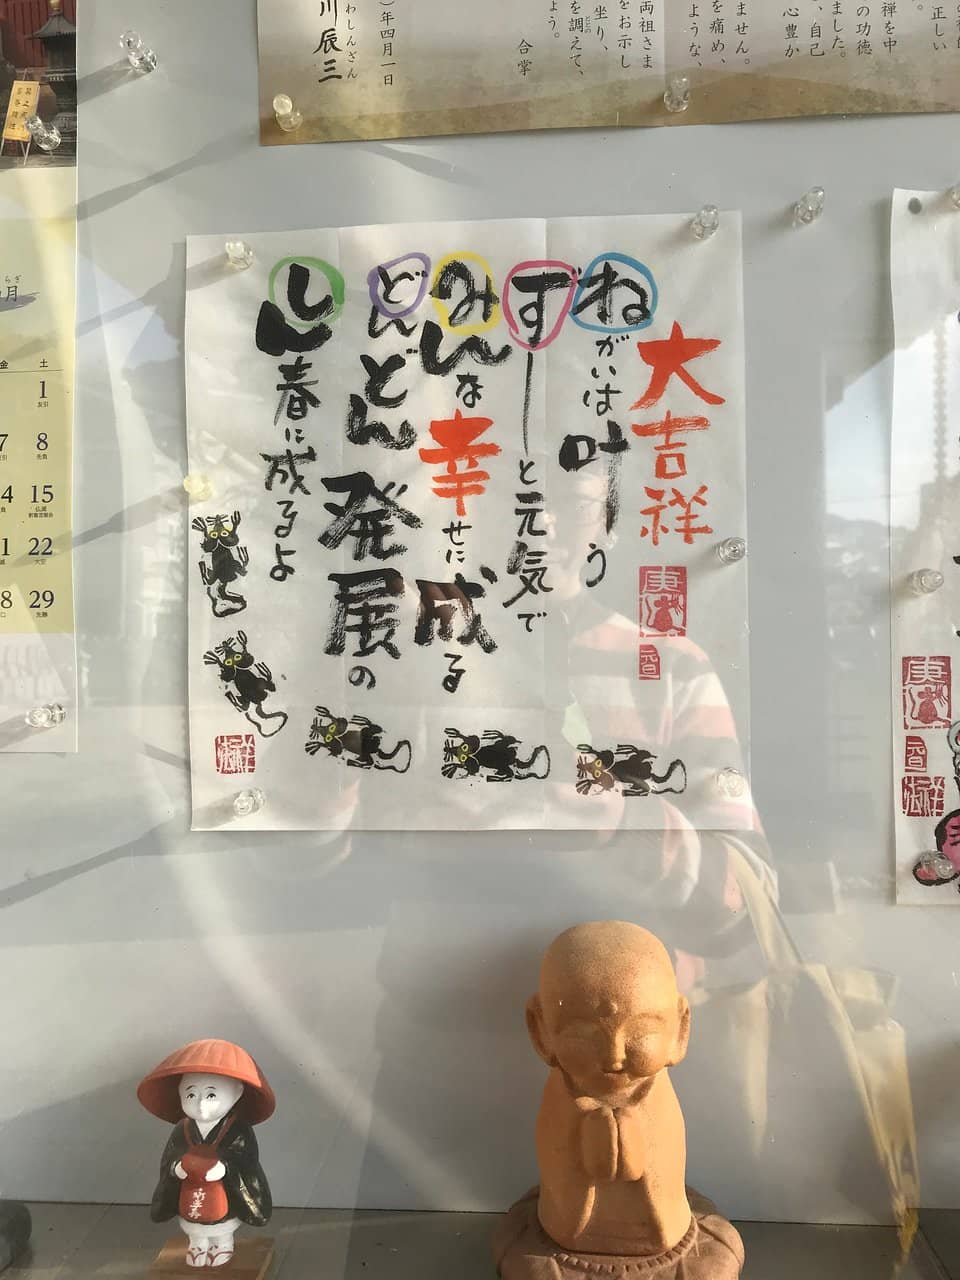 正しい
。
禅を中
の功徳
ました。
、自己
心豊か
ません。
を痛め、
ような、
両祖さま
をお示し
坐り、
を調えて、
ょう。
合掌
）年四月一日
わしんざん
川辰三
大吉祥
ねがいは叶う
ずーと元気で
みんな幸せに成る
どんどん発展の
しん春に成るよ
らぎ
月
金 土
1
友引
7 8
先負
4 15
仏滅
1 22
大安
8 29
先勝